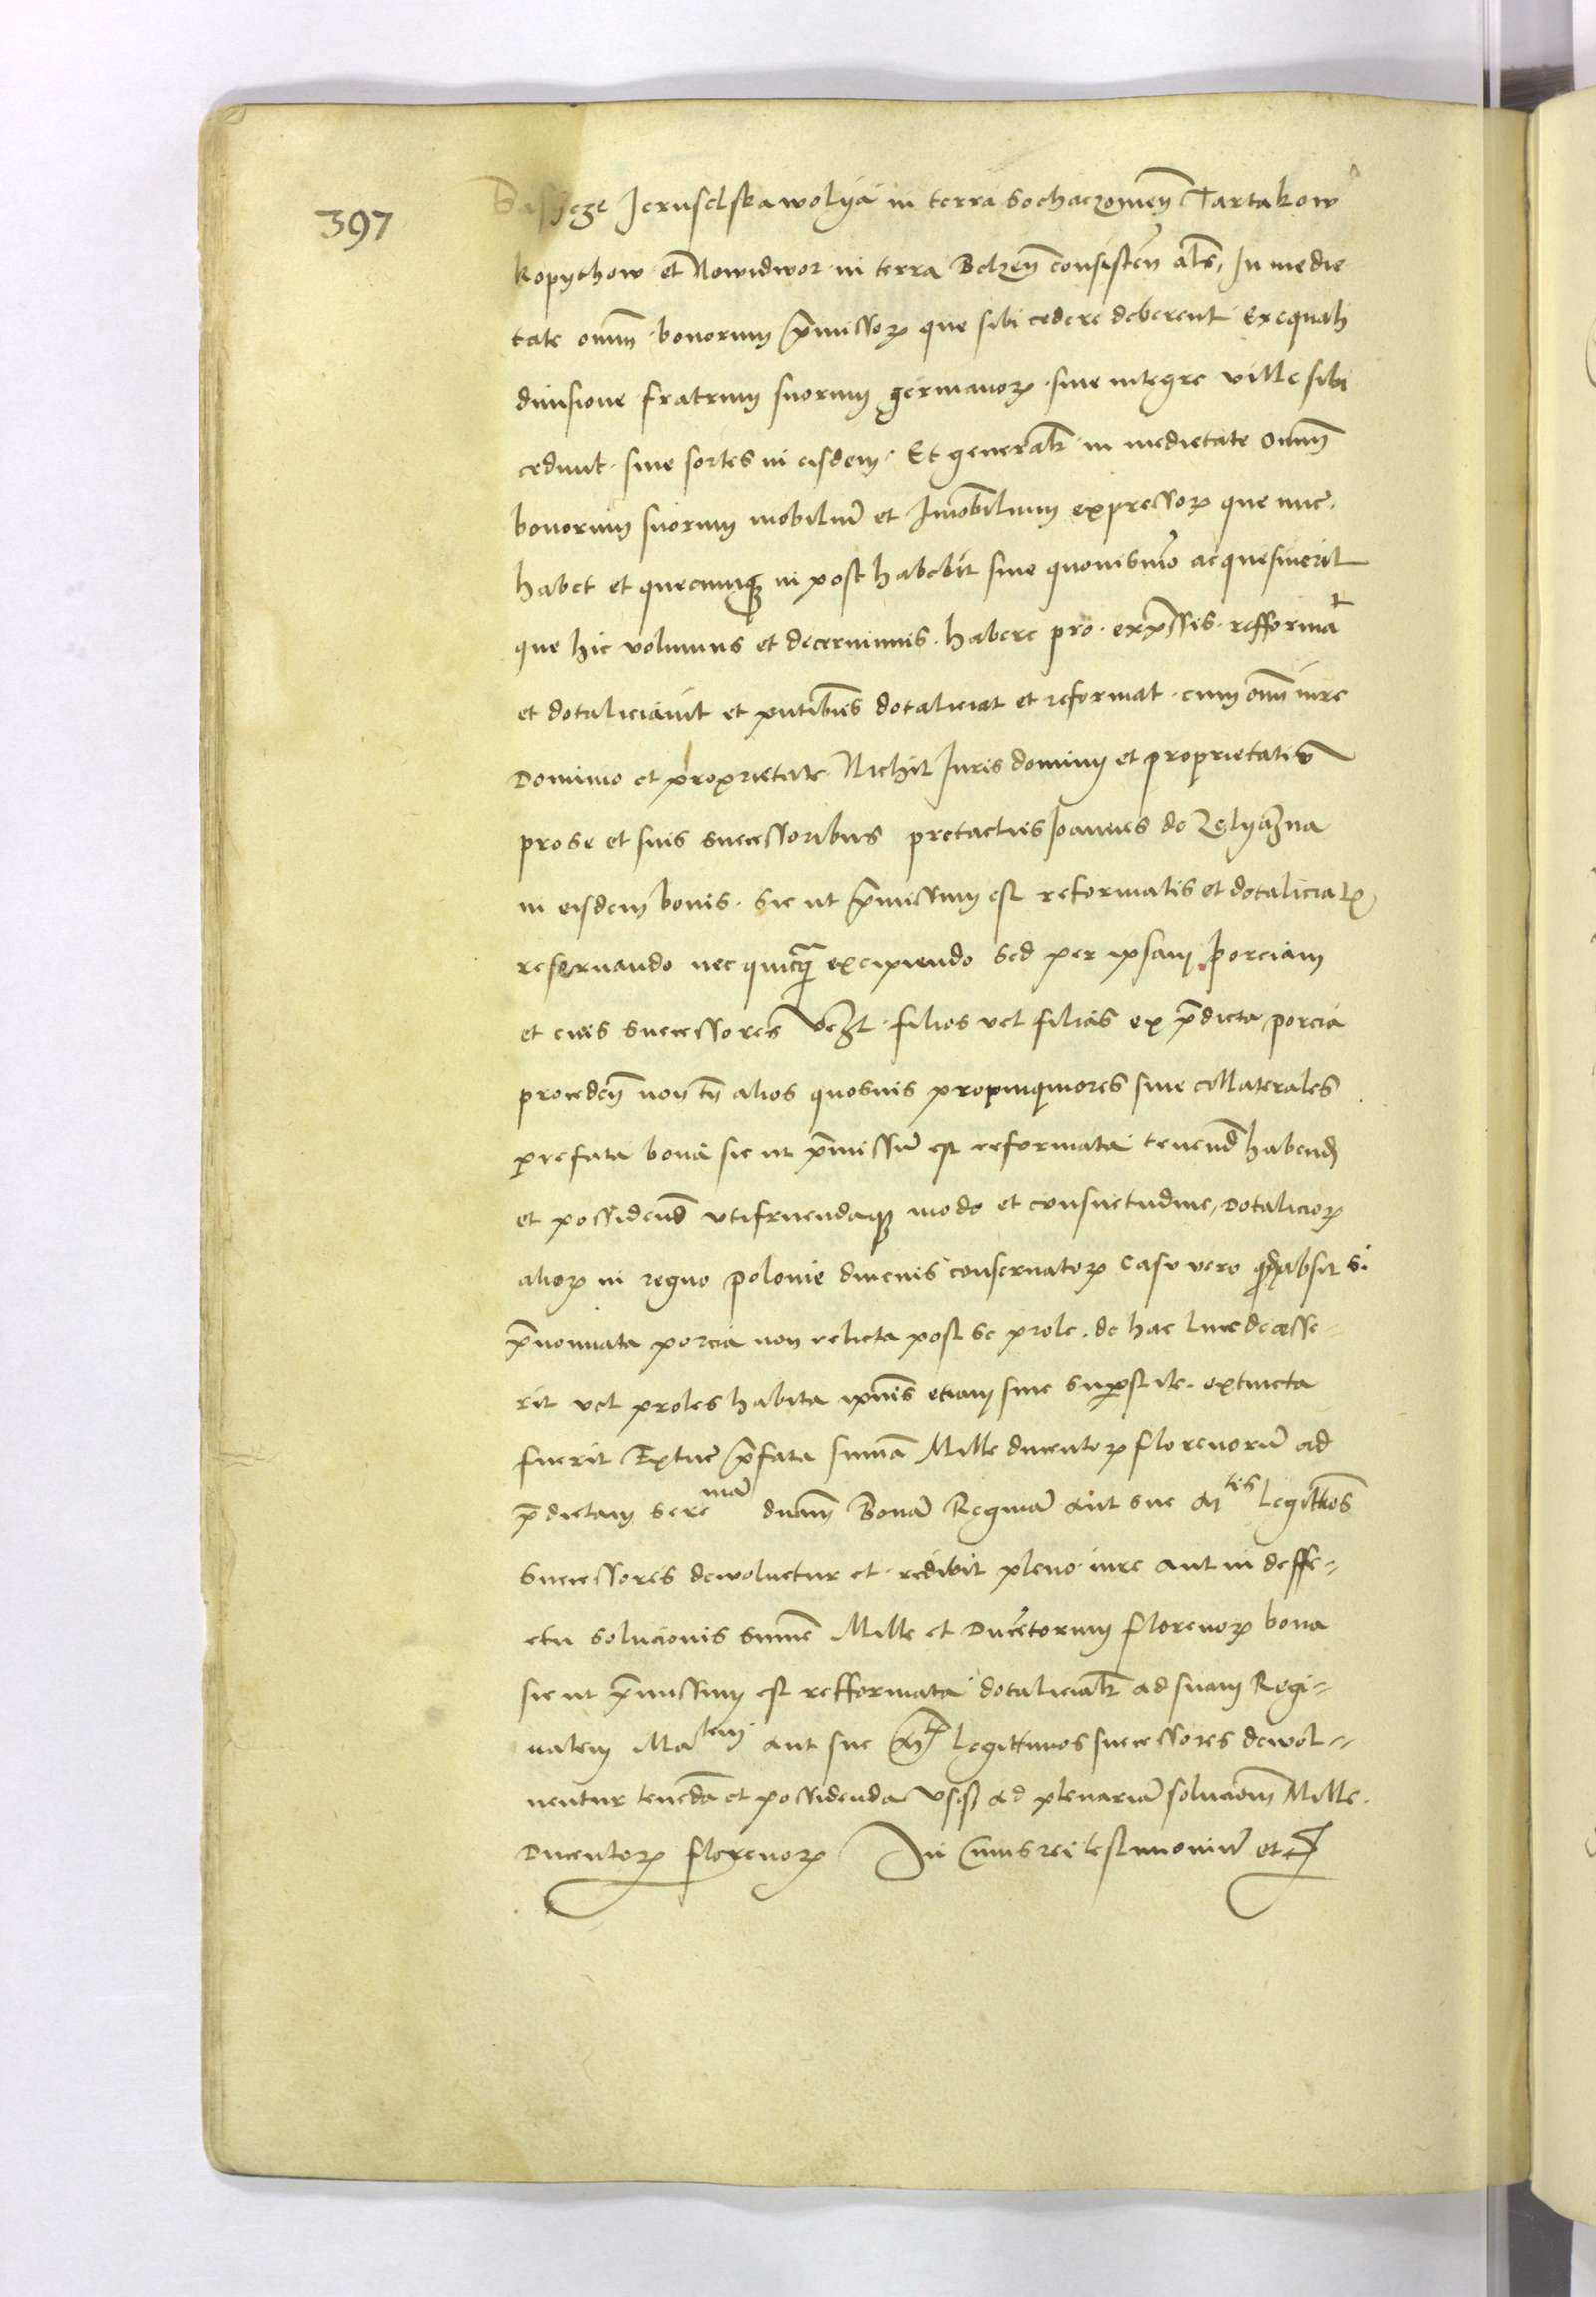 397
Baszcze Jeruselska wolya in terra Sochaczowien Tartakow
Kopythow et Nowidwor in terra Belzen consisten als, In medie
tate omnium bonorum premissorum que sibi cedere deberent Ex equali
diuisione fratrum suorum germanorum siue integre ville sibi
cedunt siue sortes in eisdem. Et generaliter in medietate omnium
bonorum suorum mobilium et Immobilium expressorum que nunc
habet et quecumque in post habebit siue quouismodo acquisiuerit
que hic volumus et decernimus habere pro expressis refformat
et dotaliciauit et presentibus dotaliciat et reformat cum omni iure
Dominio et proprietate Nichil Juris dominij et proprietatis
pro se et suis successoribus pretactus Joannes de Zelyazna
in eisdem bonis sic ut premissum est reformatis et dotaliciatis
reseruando nec quicquam excipiendo Sed per ipsam Porciam
et eius successores videlicet filios vel filias ex predicta porcia
proceden non tamen alios quosuis propinquiores siue collaterales
prefata bona sic ut premissum est reformata tenend habend
et possidend vtifruendaque modo et consuetudine, Dotaliciorum
aliorum in regno Polonie diucius conseruatorum Casu vero quod absit si
prenominata porcia non relicta post se prole de hac luce decesse-
rit vel proles habita ipsius etiam siue superstite extincta
fuerit Extunc prefata summa Mille ducentorum florenorum ad
predictam Serenissimam dominam Bonam Reginam aut sue Mtis Legittimos
Successores dewoluetur et redibit pleno iure aut in deffe-
ctu solucionis summe Mille et Ducentorum florenorum bona
sic ut premissum est refformata dotaliciata ad suam Regi-
nalem Matem aut sue Mtis Legittimos successores dewol-
uentur tenenda et possidenda vsque ad plenariam solucionem Mille
Ducentorum florenorum In Cuius rei testimonium etc